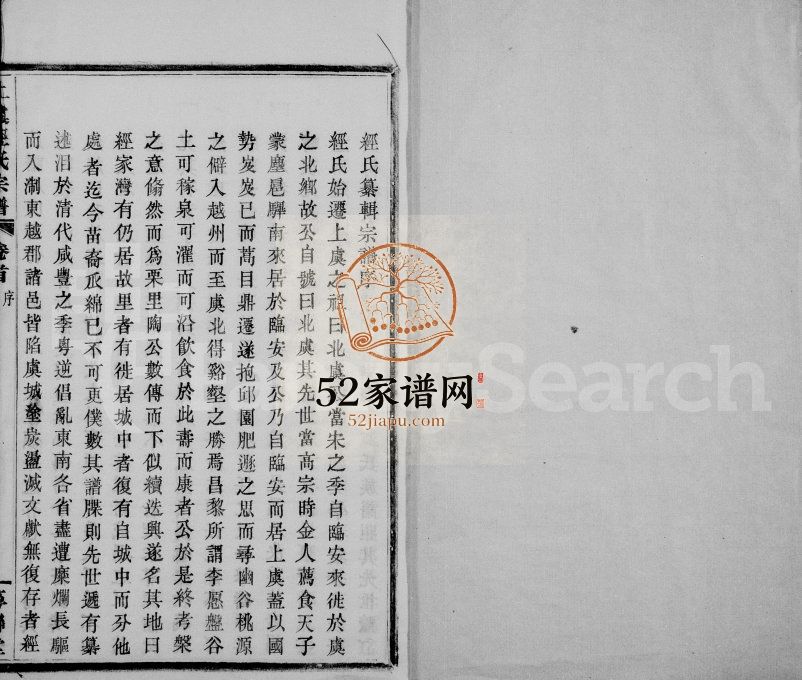 經氏纂輯宗譜序
經氏始遷上虞之祖曰北虞公當宋之季自臨安來徙於虞
之北鄉故公自號曰北虞其先世當高宗時金人薦食天子
蒙塵扈驆南來居於臨安及公乃自臨安而居上虞蓋以國
勢岌岌已而蒿目鼎遷遂抱邱園肥遯之思而尋幽谷桃源
之僻入越州而至虞北得谿壑之勝焉昌黎所謂李愿盤谷
土可稼泉可濯而可沿飲食於此壽而康者公於是終考槃
之意翛然而爲栗里陶公數傳而下似續迭興遂名其地曰
經家灣有仍居故里者有徙居城中者復有自城中而分他
處者迄今苗裔瓜綿已不可更僕數其譜牒則先世遞有纂
述洎於清代咸豐之季粵逆倡亂東南各省盡遭糜爛長驅
而入浙東越郡諸邑皆陷虞城塗炭盪滅文獻無復存者經
上虞經氏宗譜
卷首
序
一
52家谱网
52jiapu.com
Search